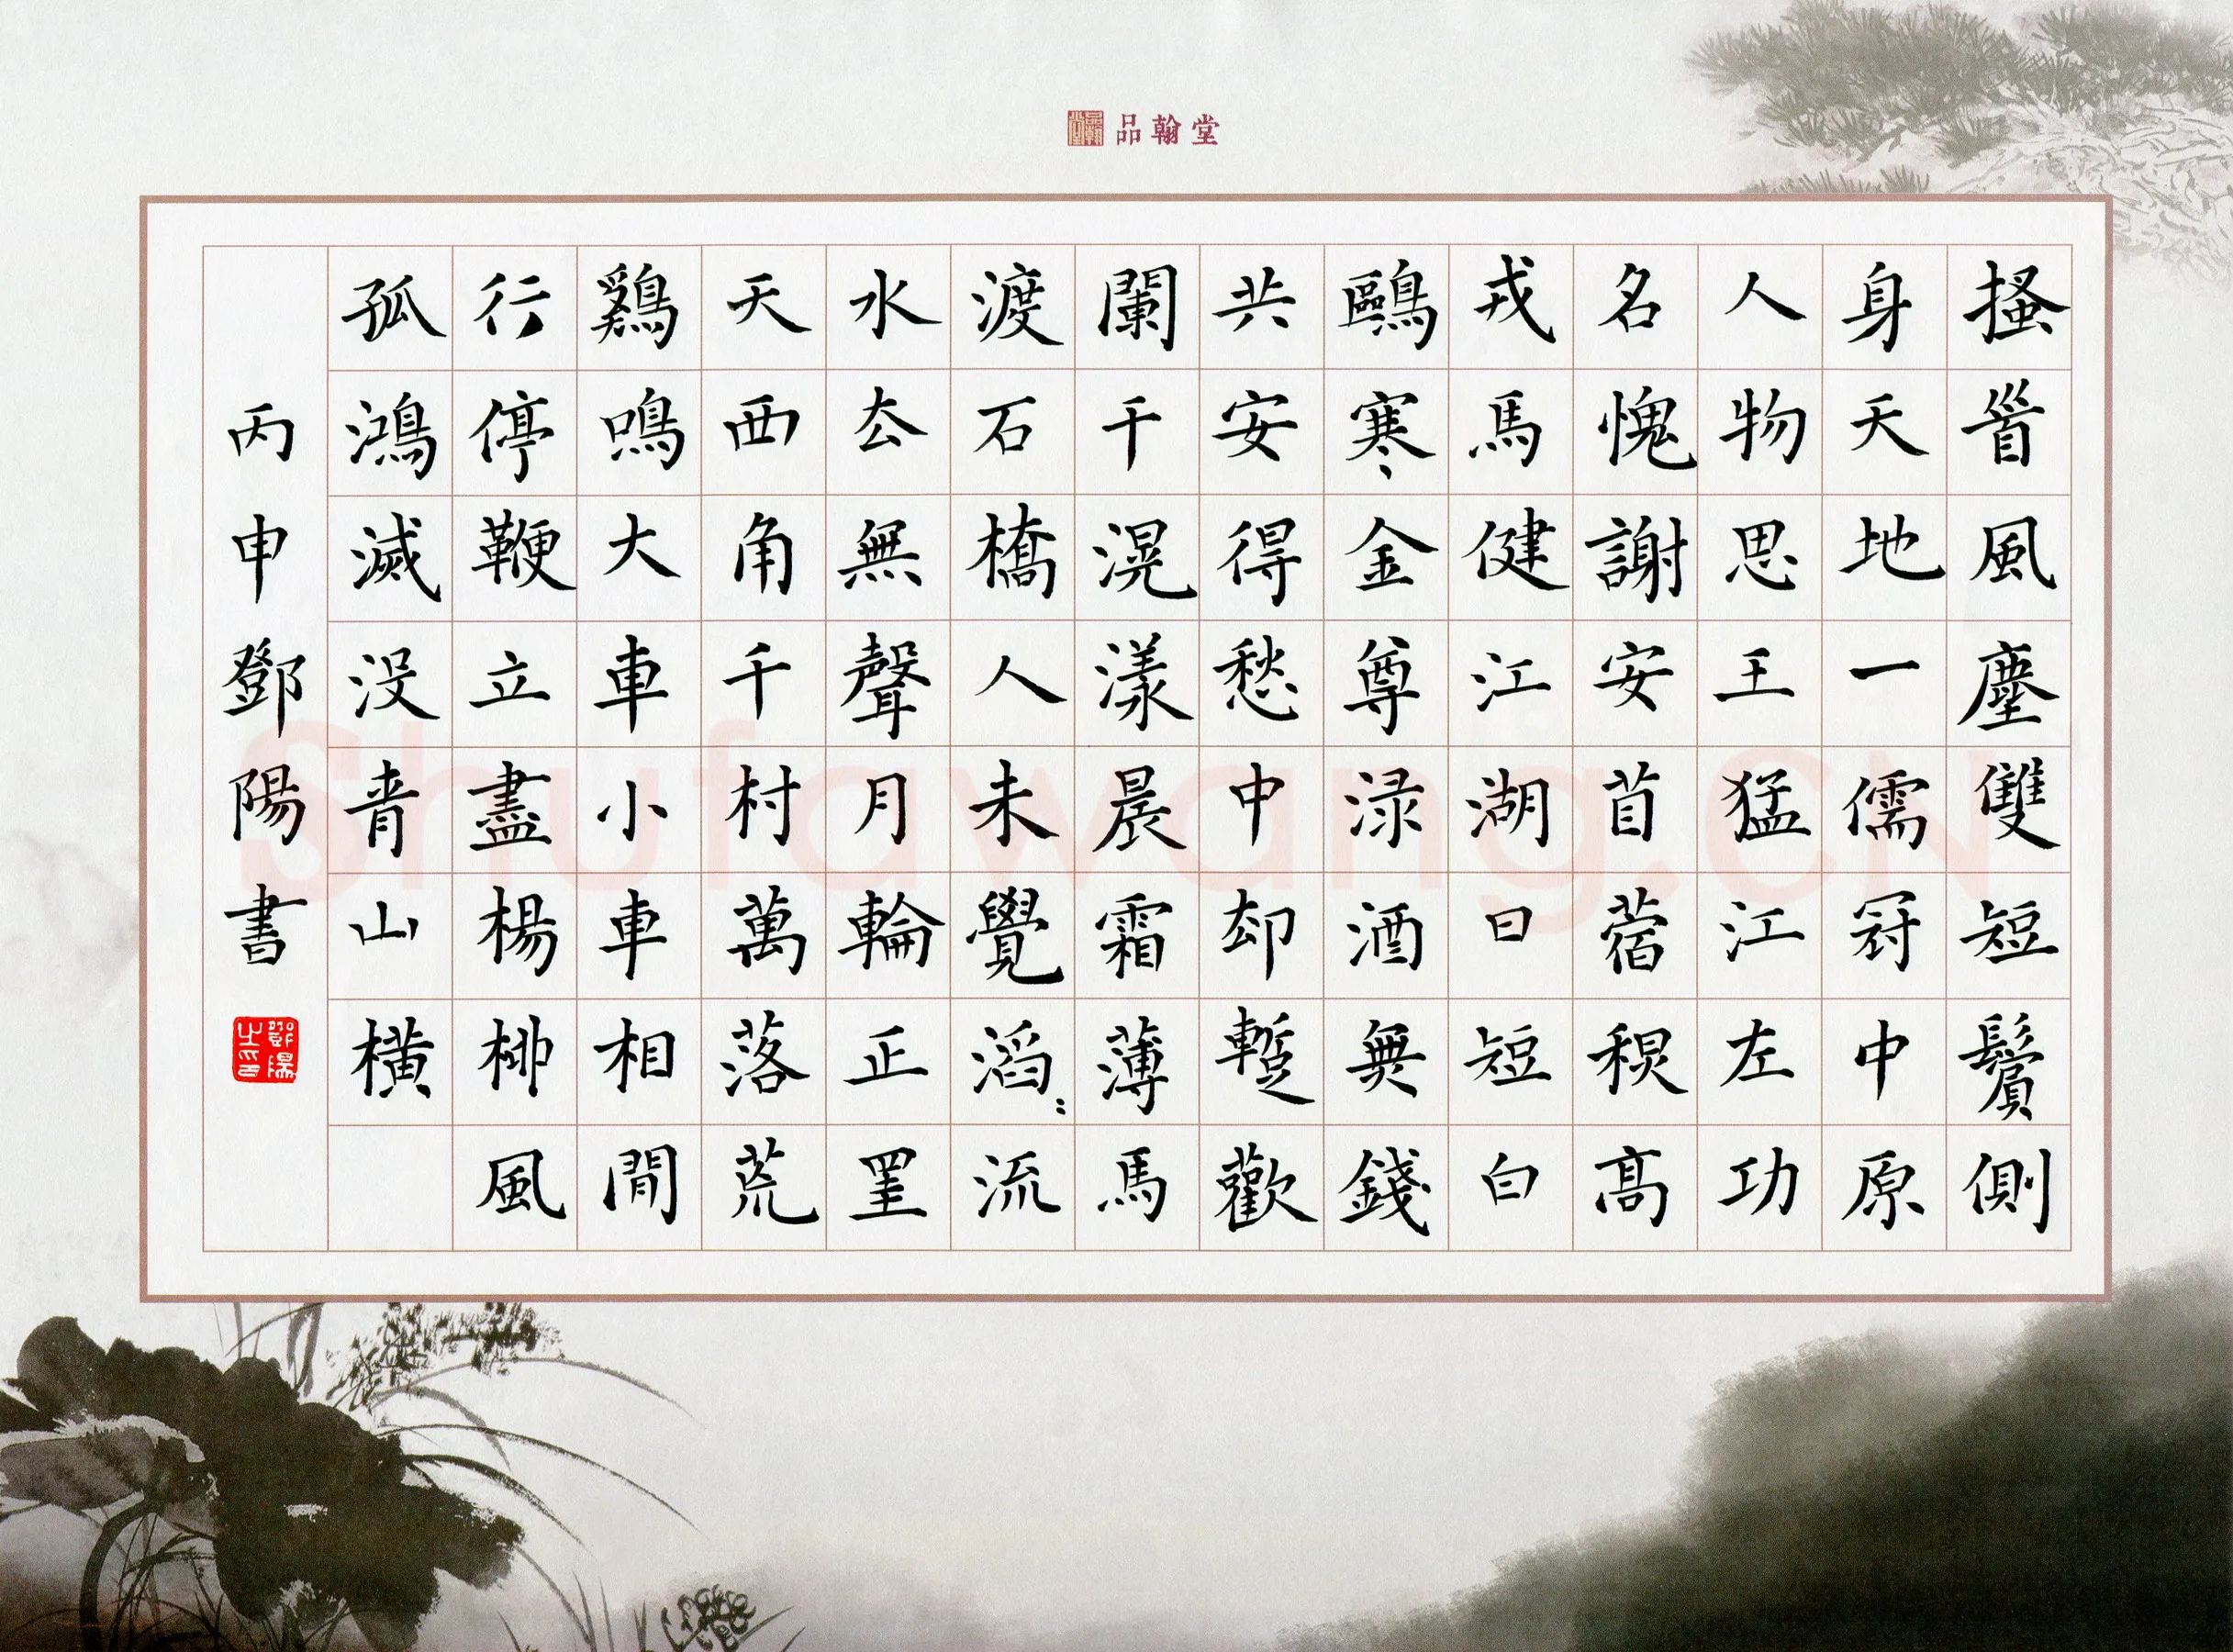 品翰堂
搔首風塵雙短鬢側
身天地一儒冠中原
人物思王猛江左功
名愧謝安苜蓿稹高
戎馬健江湖日短白
鷗寒金尊渌酒無錢
共安得愁中却蹔歡
闌干滉漾晨霜薄馬
渡石橋人未覺滔〻流
水去無聲月輪正罣
天西角千村萬落荒
鷄鳴大車小車相間
行停鞭立盡楊柳風
孤鴻滅没青山橫
丙申鄧陽書
鄧陽之印
Shufawang.CN